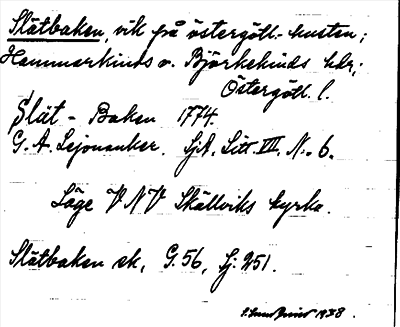 Slätbaken, vik på östergötl-kusten;
Hammarkinds o. Björkekinds hdr;
Östergötl. l.
Slät - Baken 1774.
G. A. Lejonanker. SjA. Litt. VII. No. 6.
Läge V NV Skällviks kyrka.
Slätbaken ek, G. 56, Sj: 251.
1938.